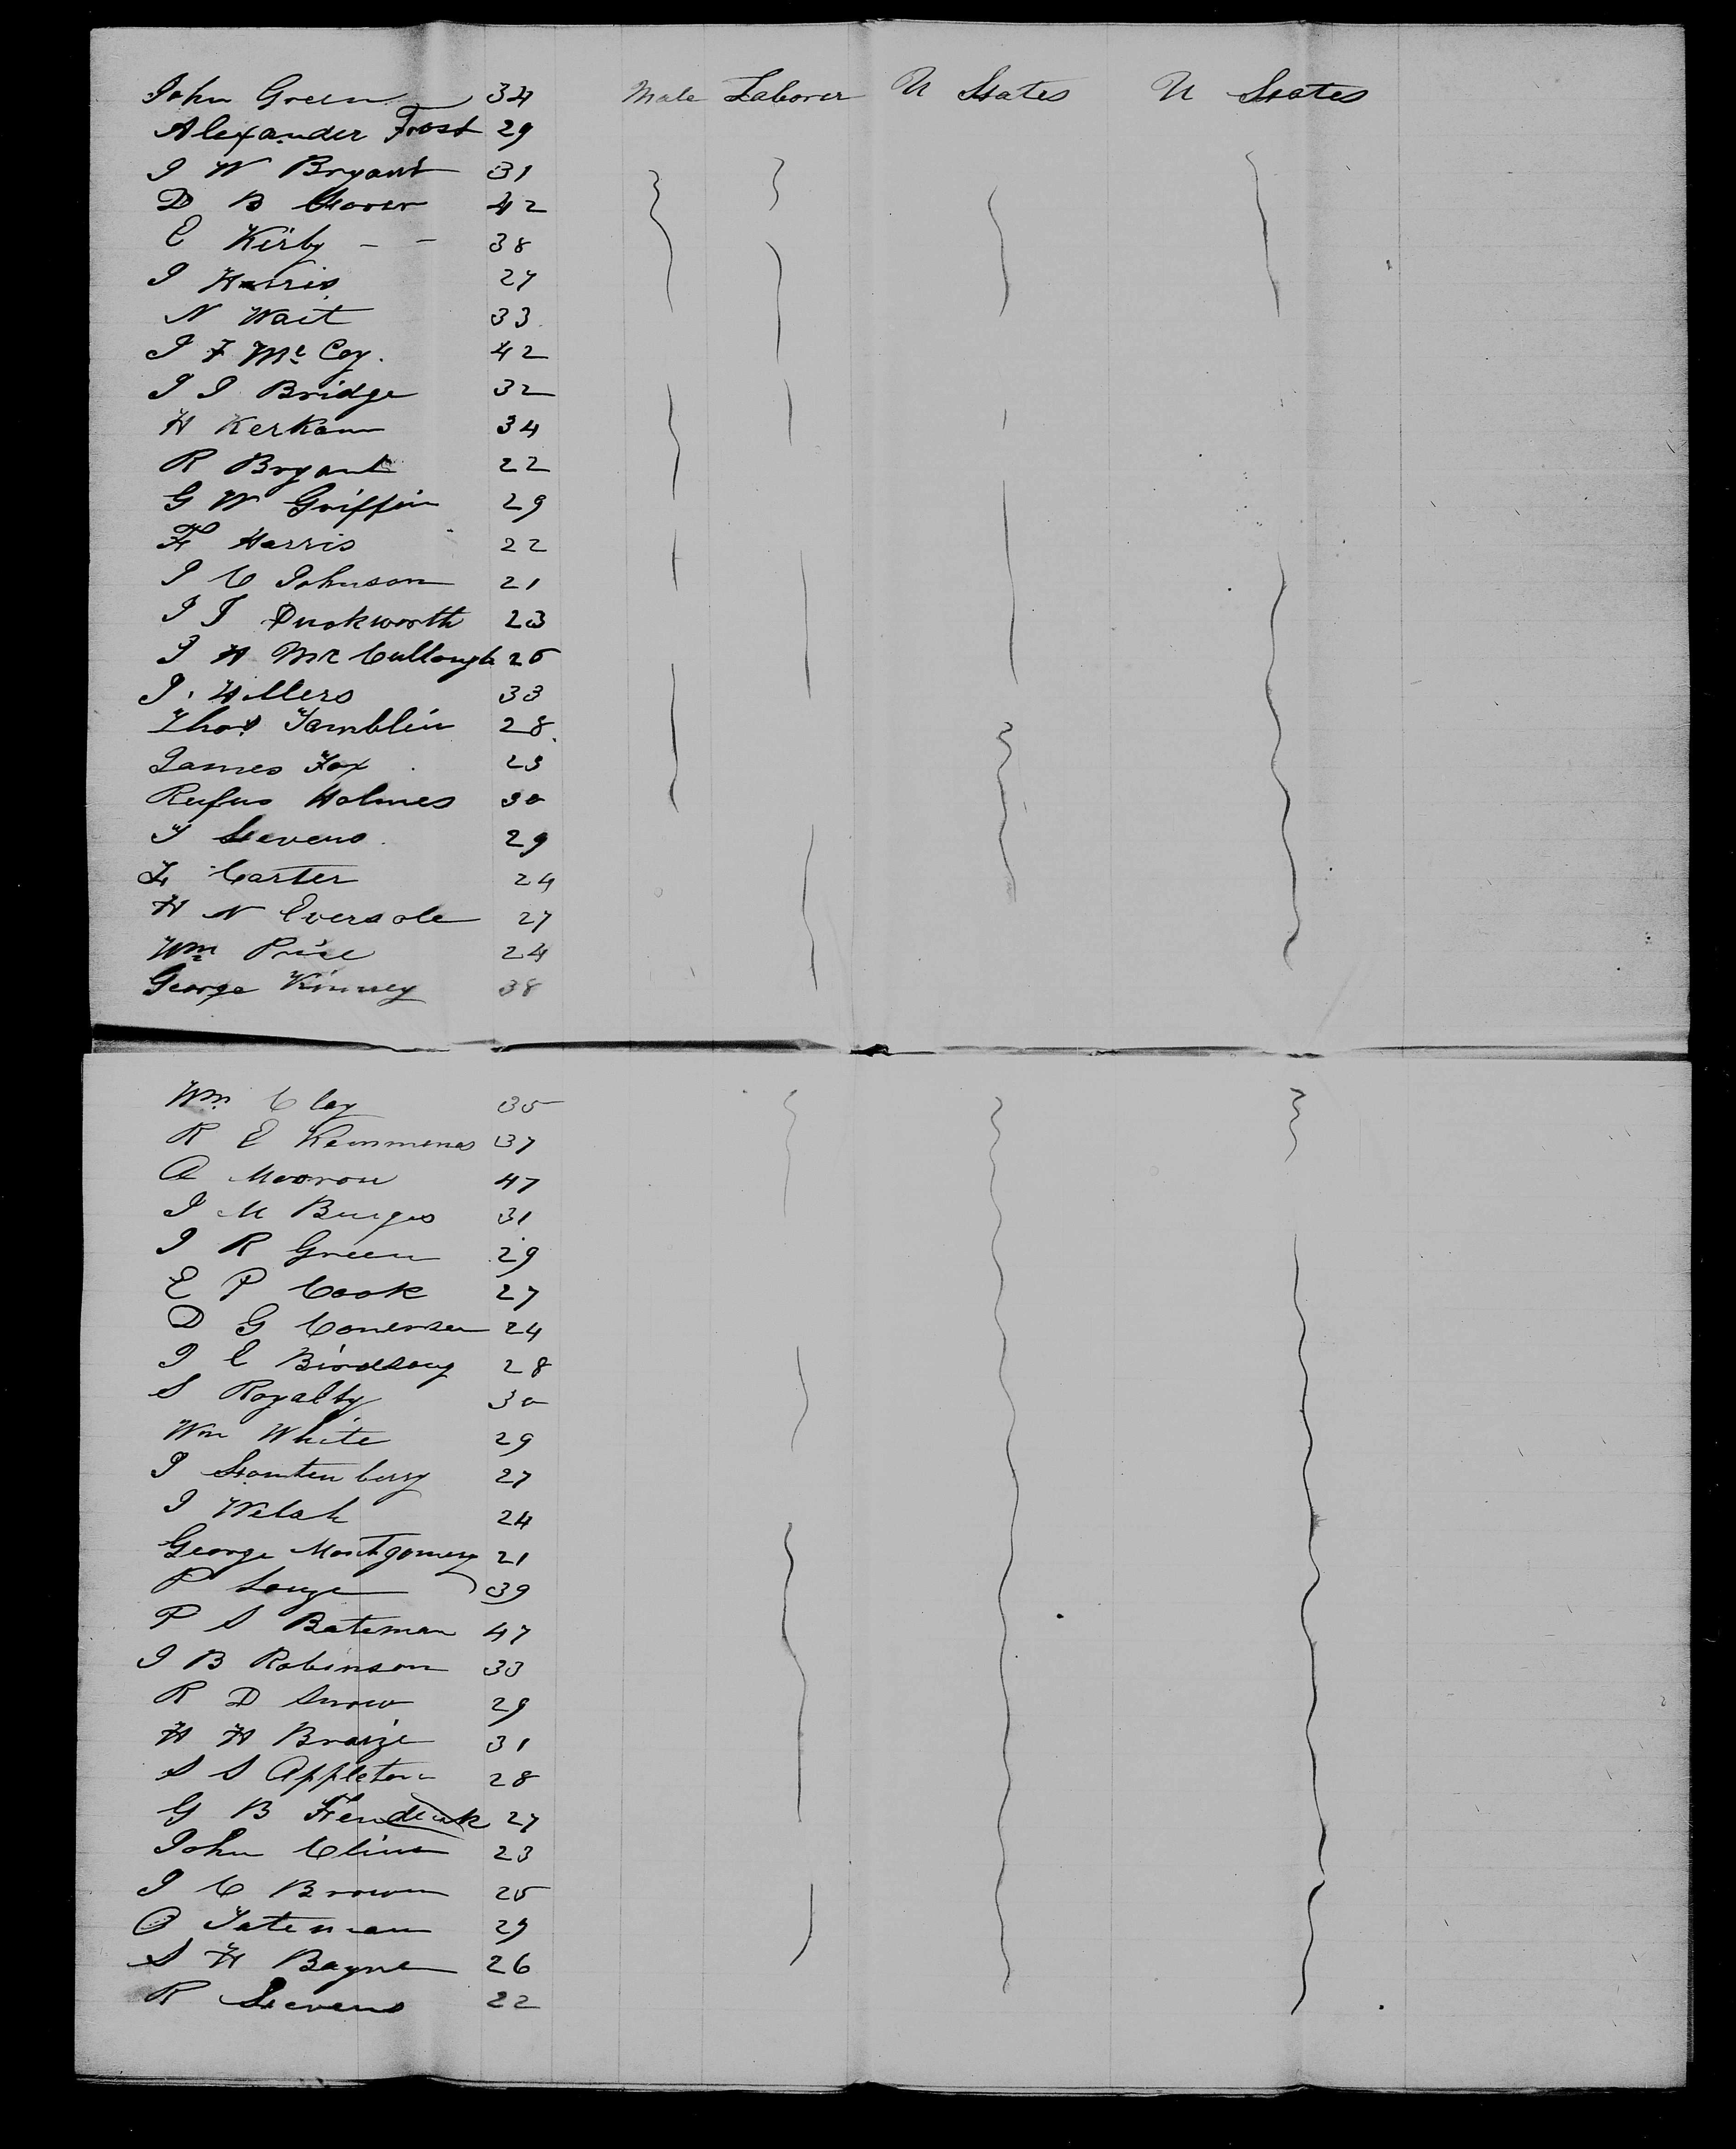 John Green 34 Male Laborer U States U States
Alexander Frost 29
J W Bryant 31
D B 42
E Kirby - - 38
J Harris 27
N Wait 33
J F Mc Coy. 42
J J Bridge 32
H Kerkam 34
R Bryant 22
G W Griffin 29
F Harris 22
J C Johnson 21
J T Duckworth 23
J H Mc Cullough 25
J. Hillers 33
Thos Tamblin 28
James Fox 23
Rufus Holmes 30
T Stevens 29
F Carter 24
H N Eversole 27
Wm Price 24
George Kinney 38
Wm. Clay 35
R E 37
A 47
J M Burges 31
J R Green 29
E P Cook 27
D G 24
J E Birdsong 28
S Royalty 30
Wm White 29
J Stoutenberry 27
J Welsh 24
George Montgomery 21
P 39
P S Bateman 47
J B Robinson 33
R D Snow 29
H H Braize 31
S S Appleton 28
G B 27
John Cline 23
J C Brown 25
O Tateman 29
S H Bayne 26
R Stevens 22